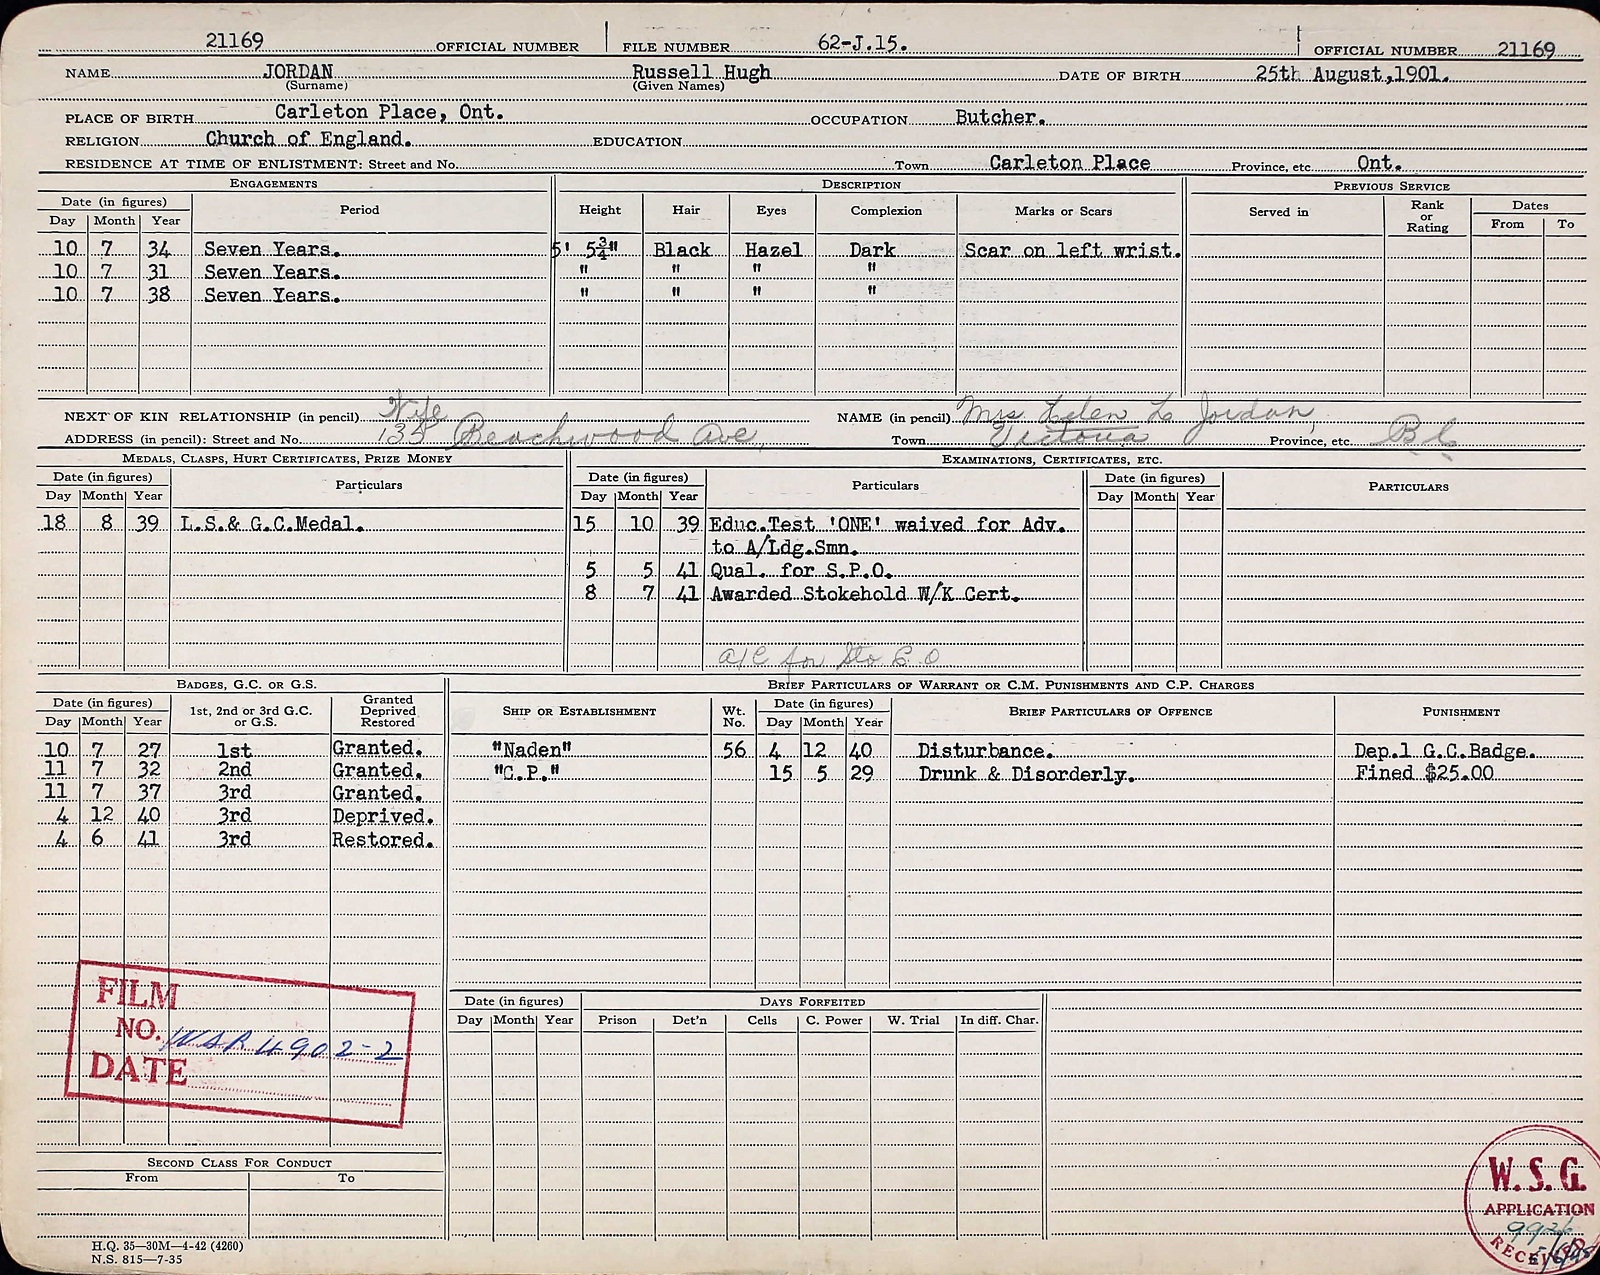 21169 OFFICIAL NUMBER FILE NUMBER 62-J.15. OFFICIAL NUMBER 21169
NAME JORDAN Russell Hugh DATE OF BIRTH 25th August, 1901.
(Surname) (Given Names)
PLACE OF BIRTH Carleton Place, Ont. OCCUPATION Butcher.
RELIGION Church of England. EDUCATION
RESIDENCE AT TIME OF ENLISTMENT: Street and No. Town Carleton Place Province, etc. Ont.
ENGAGEMENTS DESCRIPTION PREVIOUS SERVICE
Date (in figures) Period Height Hair Eyes Complexion Marks or Scars Served in Rank or Rating Dates
Day Month Year From To
10 7 34 Seven Years. 5' 5¾" Black Hazel Dark Scar on left wrist.
10 7 31 Seven Years. " " " "
10 7 38 Seven Years. " " " "
NEXT OF KIN RELATIONSHIP (in pencil) Wife NAME (in pencil) Mrs Helen L Jordan,
ADDRESS (in pencil): Street and No. 135 Beachwood Ave, Town Victoria Province, etc. B C
MEDALS, CLASPS, HURT CERTIFICATES, PRIZE MONEY EXAMINATIONS, CERTIFICATES, ETC.
Date (in figures) Particulars Date (in figures) Particulars Date (in figures) PARTICULARS
Day Month Year Day Month Year Day Month Year
18 8 39 L.S.& G.C.Medal. 15 10 39 Educ.Test 'ONE' waived for Adv.
to A/Ldg.Smn.
5 5 41 Qual. for S.P.O.
8 7 41 Awarded Stokehold W/K Cert.
a/c for Sto P.O
BADGES, G.C. OR G.S. BRIEF PARTICULARS OF WARRANT OR C.M. PUNISHMENTS AND C.P. CHARGES
Date (in figures) 1st, 2nd or 3rd G.C. or G.S. Granted Deprived Restored SHIP OR ESTABLISHMENT Wt. No. Date (in figures) BRIEF PARTICULARS OF OFFENCE PUNISHMENT
Day Month Year Day Month Year
10 7 27 1st Granted. "Naden" 56 4 12 40 Disturbance. Dep.1 G.C.Badge.
11 7 32 2nd Granted. "C.P." 15 5 29 Drunk & Disorderly. Fined $25.00
11 7 37 3rd Granted.
4 12 40 3rd Deprived.
4 6 41 3rd Restored.
FILM
NO. WSR 4902-2
DATE
Date (in figures) DAYS FORFEITED
Day Month Year Prison Det'n Cells C. Power W. Trial In diff. Char.
SECOND CLASS FOR CONDUCT
From To
W.S.G.
APPLICATION
RECEIVED
H.Q. 35—30M—4-42 (4260)
N.S. 815—7-35